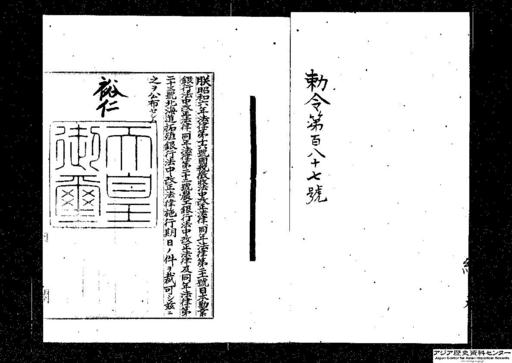 勅令第百八十七號
朕昭和六年法律第十六號國稅徵收法中改正法律、同年法律第二十一號日本勸業
銀行法中改正法律、同年法律第二十二號農工銀行法中改正法律及同年法律第
二十三號北海道拓殖銀行法中改正法律施行期日ノ件ヲ裁可シ玆ニ
之ヲ公布セシム
裕仁
天皇
御璽
アジア歴史資料センター
Japan Center for Asian Historical Records